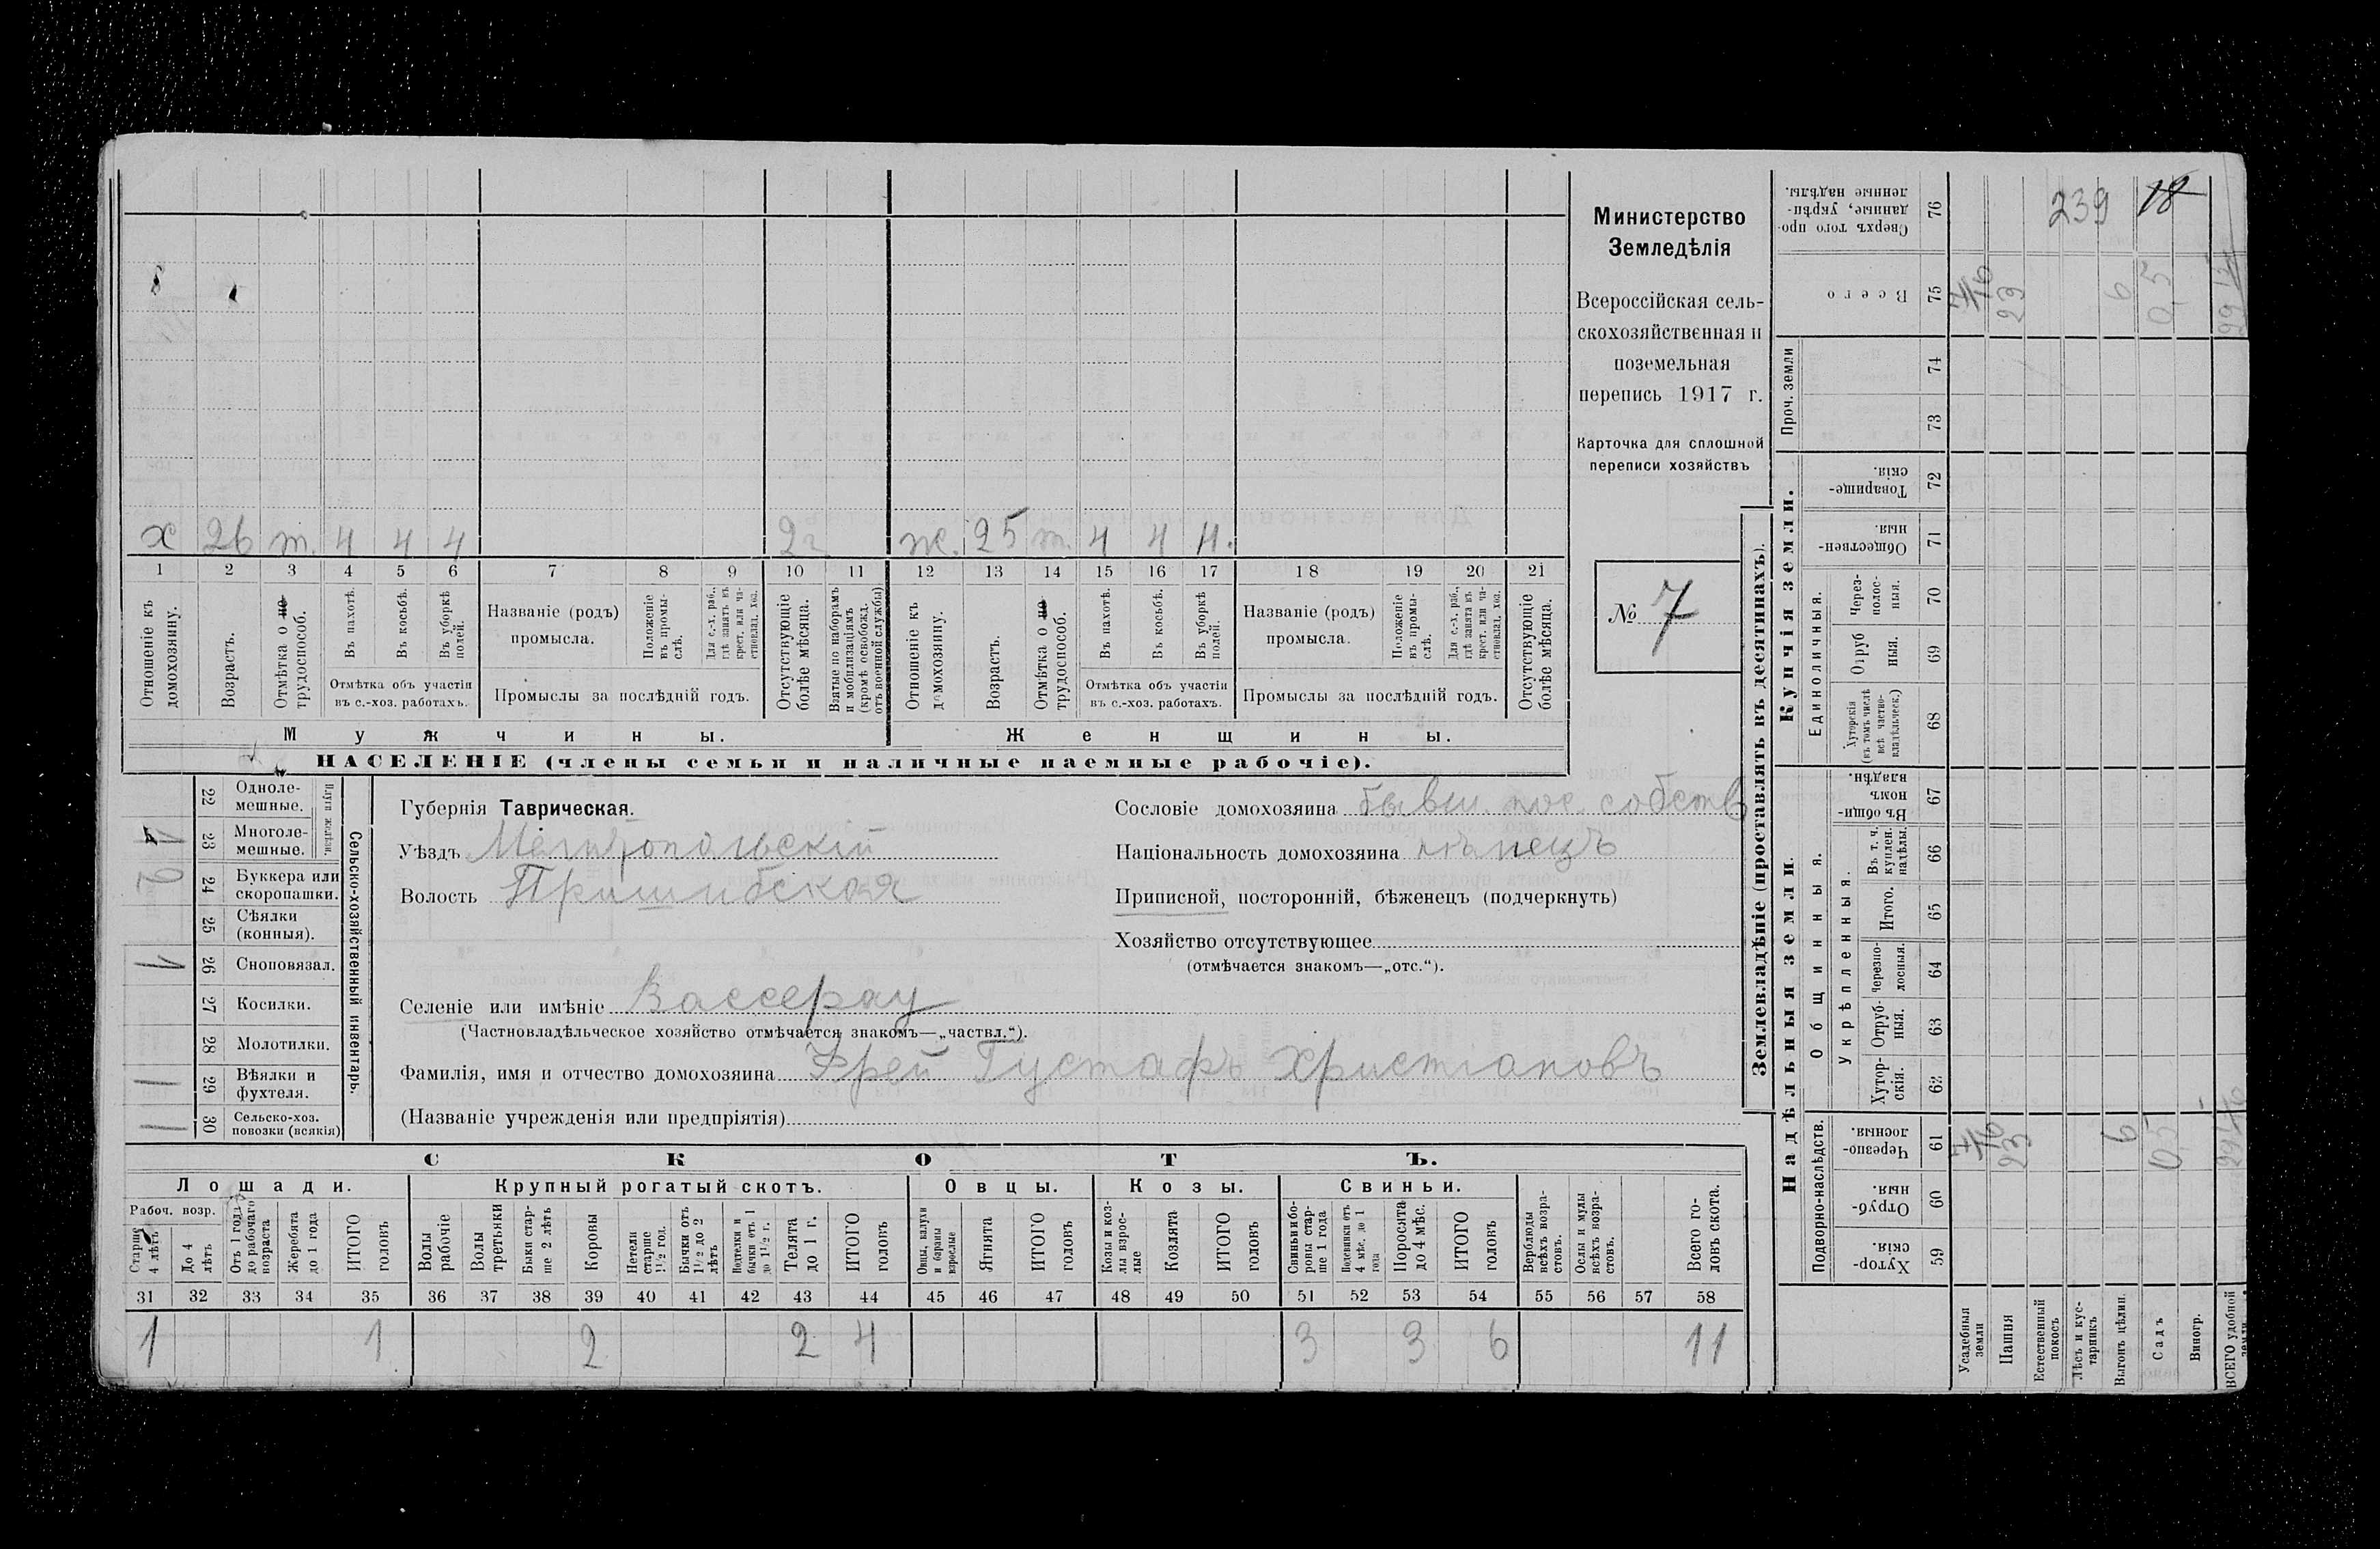 Министерство
Земледѣлія
Всероссійская сель-
скохозяйственная и
поземельная
перепись 1917 г.
Карточка для сплошной
переписи хозяйствъ
№ 7
х 26 т. 4 4 4 2г ж. 25 т. 4 4 4.
1 2 3 4 5 6 7 8 9 10 11 12 13 14 15 16 17 18 19 20 21
Отношеніе къ домохозяину.
Возрастъ.
Отмѣтка о не трудоспособ.
Въ пахотѣ.
Въ косьбѣ.
Въ уборкѣ полей.
Отмѣтка объ участіи
въ с.-хоз. работахъ.
Названіе (родъ)
промысла.
Положеніе въ промы-слѣ.
Для с.-х. раб., гдѣ занятъ въ крест. или ча-стновлад. хоз.
Промыслы за послѣдній годъ.
Отсутствующіе болѣе мѣсяца.
Взятые по наборамъ и мобилизаціямъ (кромѣ освобожд. отъ военной службы)
Отношеніе къ домохозяину.
Возрастъ.
Отмѣтка о не трудоспособ.
Въ пахотѣ.
Въ косьбѣ.
Въ уборкѣ полей.
Отмѣтка объ участіи
въ с.-хоз. работахъ.
Названіе (родъ)
промысла.
Положеніе въ промы-слѣ.
Для с.-х. раб., гдѣ занята въ крест. или ча-стновлад. хоз.
Промыслы за послѣдній годъ.
Отсутствующіе болѣе мѣсяца.
Мужчины. Женщины.
НАСЕЛЕНІЕ (члены семьи и наличные наемные рабочіе).
Сельско-хозяйственный инвентарь.
Плуги желѣзн.
22 Одноле-мешные.
23 Многоле-мешные.
24 Буккера или скоропашки.
25 Сѣялки (конныя).
1 26 Сноповязал.
27 Косилки.
28 Молотилки.
1 29 Вѣялки и фухтеля.
1 30 Сельско-хоз. повозки (всякія)
Губернія Таврическая.
Уѣздъ Мелитопольскій
Волость Пришибская
Сословіе домохозяина бывш. пос. собств
Національность домохозяина нѣмецъ
Приписной, посторонній, бѣженецъ (подчеркнуть)
Хозяйство отсутствующее
(отмѣчается знакомъ—„отс.“).
Селеніе или имѣніе Вассерау
(Частновладѣльческое хозяйство отмѣчается знакомъ—„частвл.“).
Фамилія, имя и отчество домохозяина Фрей Густафъ Христіановъ
(Названіе учрежденія или предпріятія)
СКОТЪ.
Лошади. Крупный рогатый скотъ. Овцы. Козы. Свиньи.
Рабоч. возр.
Старше 4 лѣтъ
До 4 лѣтъ
Отъ 1 года до рабочаго возраста
Жеребята до 1 года
ИТОГО головъ
Волы рабочіе
Волы третьяки
Быки стар-ше 2 лѣтъ
Коровы
Нетели старше 1½ год.
Бычки отъ 1½ до 2 лѣтъ
Подтелки и бычки отъ 1 до 1½ г.
Телята до 1 г.
ИТОГО головъ
Овцы, валухи и бараны взрослые
Ягнята
ИТОГО головъ
Козы и коз-лы взрос-лые
Козлята
ИТОГО головъ
Свиньи и бо-ровы стар-ше 1 года
Подсвинки отъ 4 мѣс. до 1 года
Поросята до 4 мѣс.
ИТОГО головъ
Верблюды всѣхъ возра-стовъ.
Ослы и мулы всѣхъ возра-стовъ.
Всего го-ловъ скота.
31 32 33 34 35 36 37 38 39 40 41 42 43 44 45 46 47 48 49 50 51 52 53 54 55 56 57 58
1 1 2 2 4 3 3 6 11
Землевладѣніе (проставлять въ десятинахъ).
Купчія земли.
Проч. земли
Единоличныя.
Сверхъ того про-данные, укрѣп-ленные надѣлы. 76
239 18
Всего 75
23 6 0,5
74
73
Товарище-скія. 72
Обществен-ныя. 71
Через-полос-ныя. 70
Отруб ныя. 69
Хуторскія (въ томъ числѣ всѣ частно-владѣльческ.) 68
Надѣльныя земли.
Общинныя.
Укрѣпленныя.
Въ общи-номъ владѣн. 67
Въ т. ч. куплен. надѣлы. 66
Итого. 65
Черезпо-лосныя. 64
Отруб-ныя. 63
Хутор-скія. 62
Подворно-наслѣдств.
Черезпо-лосныя. 61
23 6 0,5
Отруб-ныя. 60
Хутор-скія. 59
Усадебныя земли
Пашня
Естественный покосъ
Лѣсъ и кус-тарникъ
Выгонъ цѣлин.
Садъ
Виногр.
ВСЕГО удобной земли.